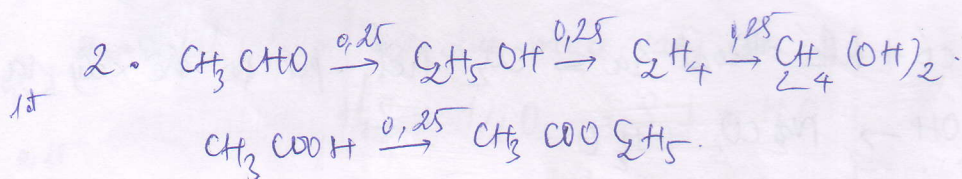 2. CH3CHO 0,25→ C2H5OH 0,25→ C2H4 0,25→ C2H4(OH)2.
1đ
CH3COOH 0,25→ CH3COOC2H5.